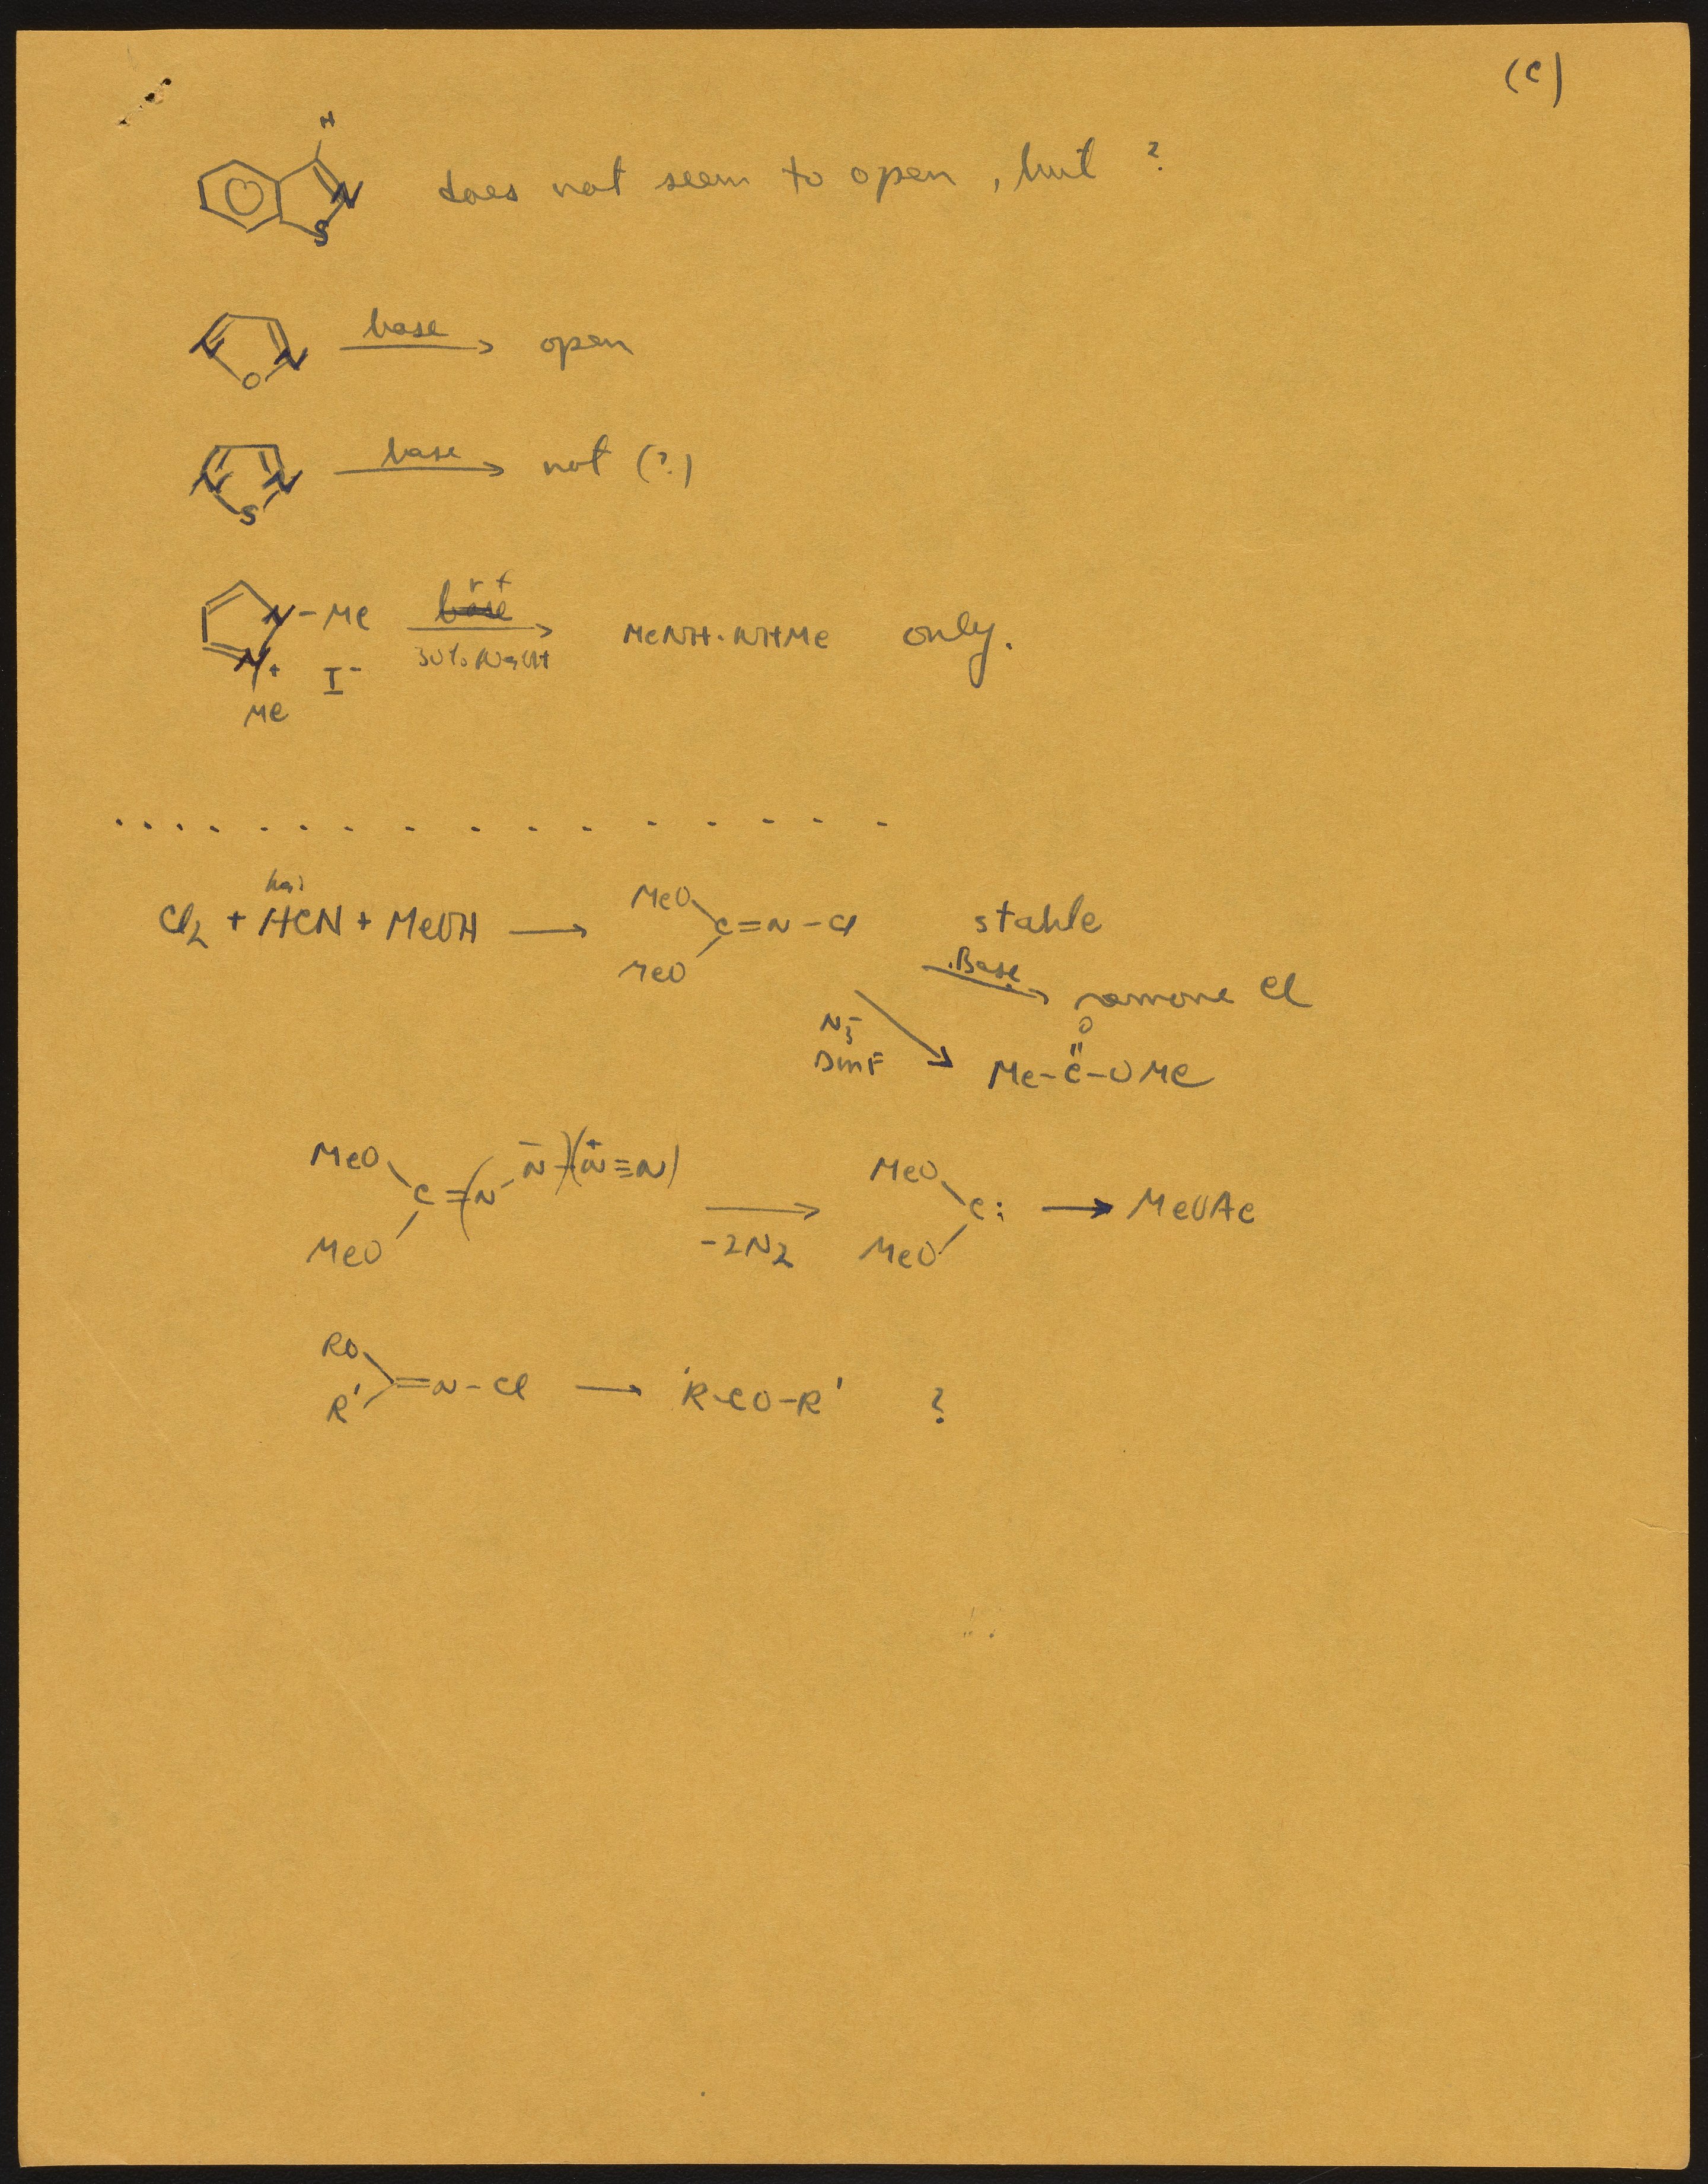 (c)
H
N
S
does not seem to open, but ?
N
N
O
base
open
N
N
S
base
not (?)
N-Me
N+
Me
I-
base
30% NaOH
MeNH·NHMe only.
Cl2 + HCN + MeOH →
MeO
C=N-Cl
MeO
stable
Base
remove Cl
N3-
DMF
O
Me-C-OMe
MeO
C=N-N̄)(N̟≡N)
MeO
-2N2
MeO
C:
MeO
→ MeOAc
RO
=N-Cl → R-CO-R' ?
R'